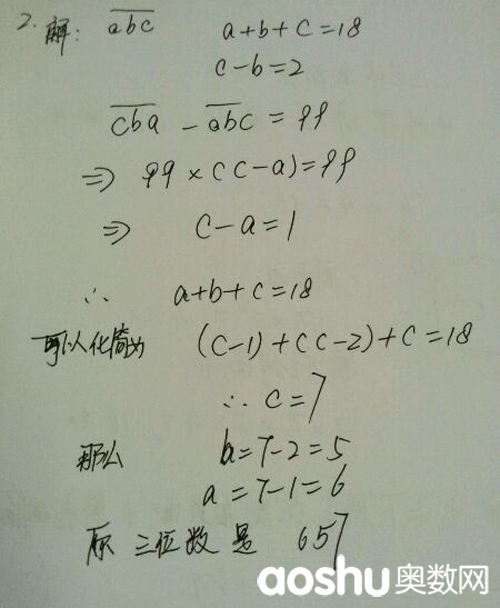 2. 解: \overline{abc} a+b+c=18
c-b=2
\overline{cba} - \overline{abc} = 99
⇒ 99×(c-a)=99
⇒ c-a=1
∴ a+b+c=18
可以化简为 (c-1)+(c-2)+c=18
∴ c=7
那么 b=7-2=5
a=7-1=6
原三位数是 657
aoshu奥数网